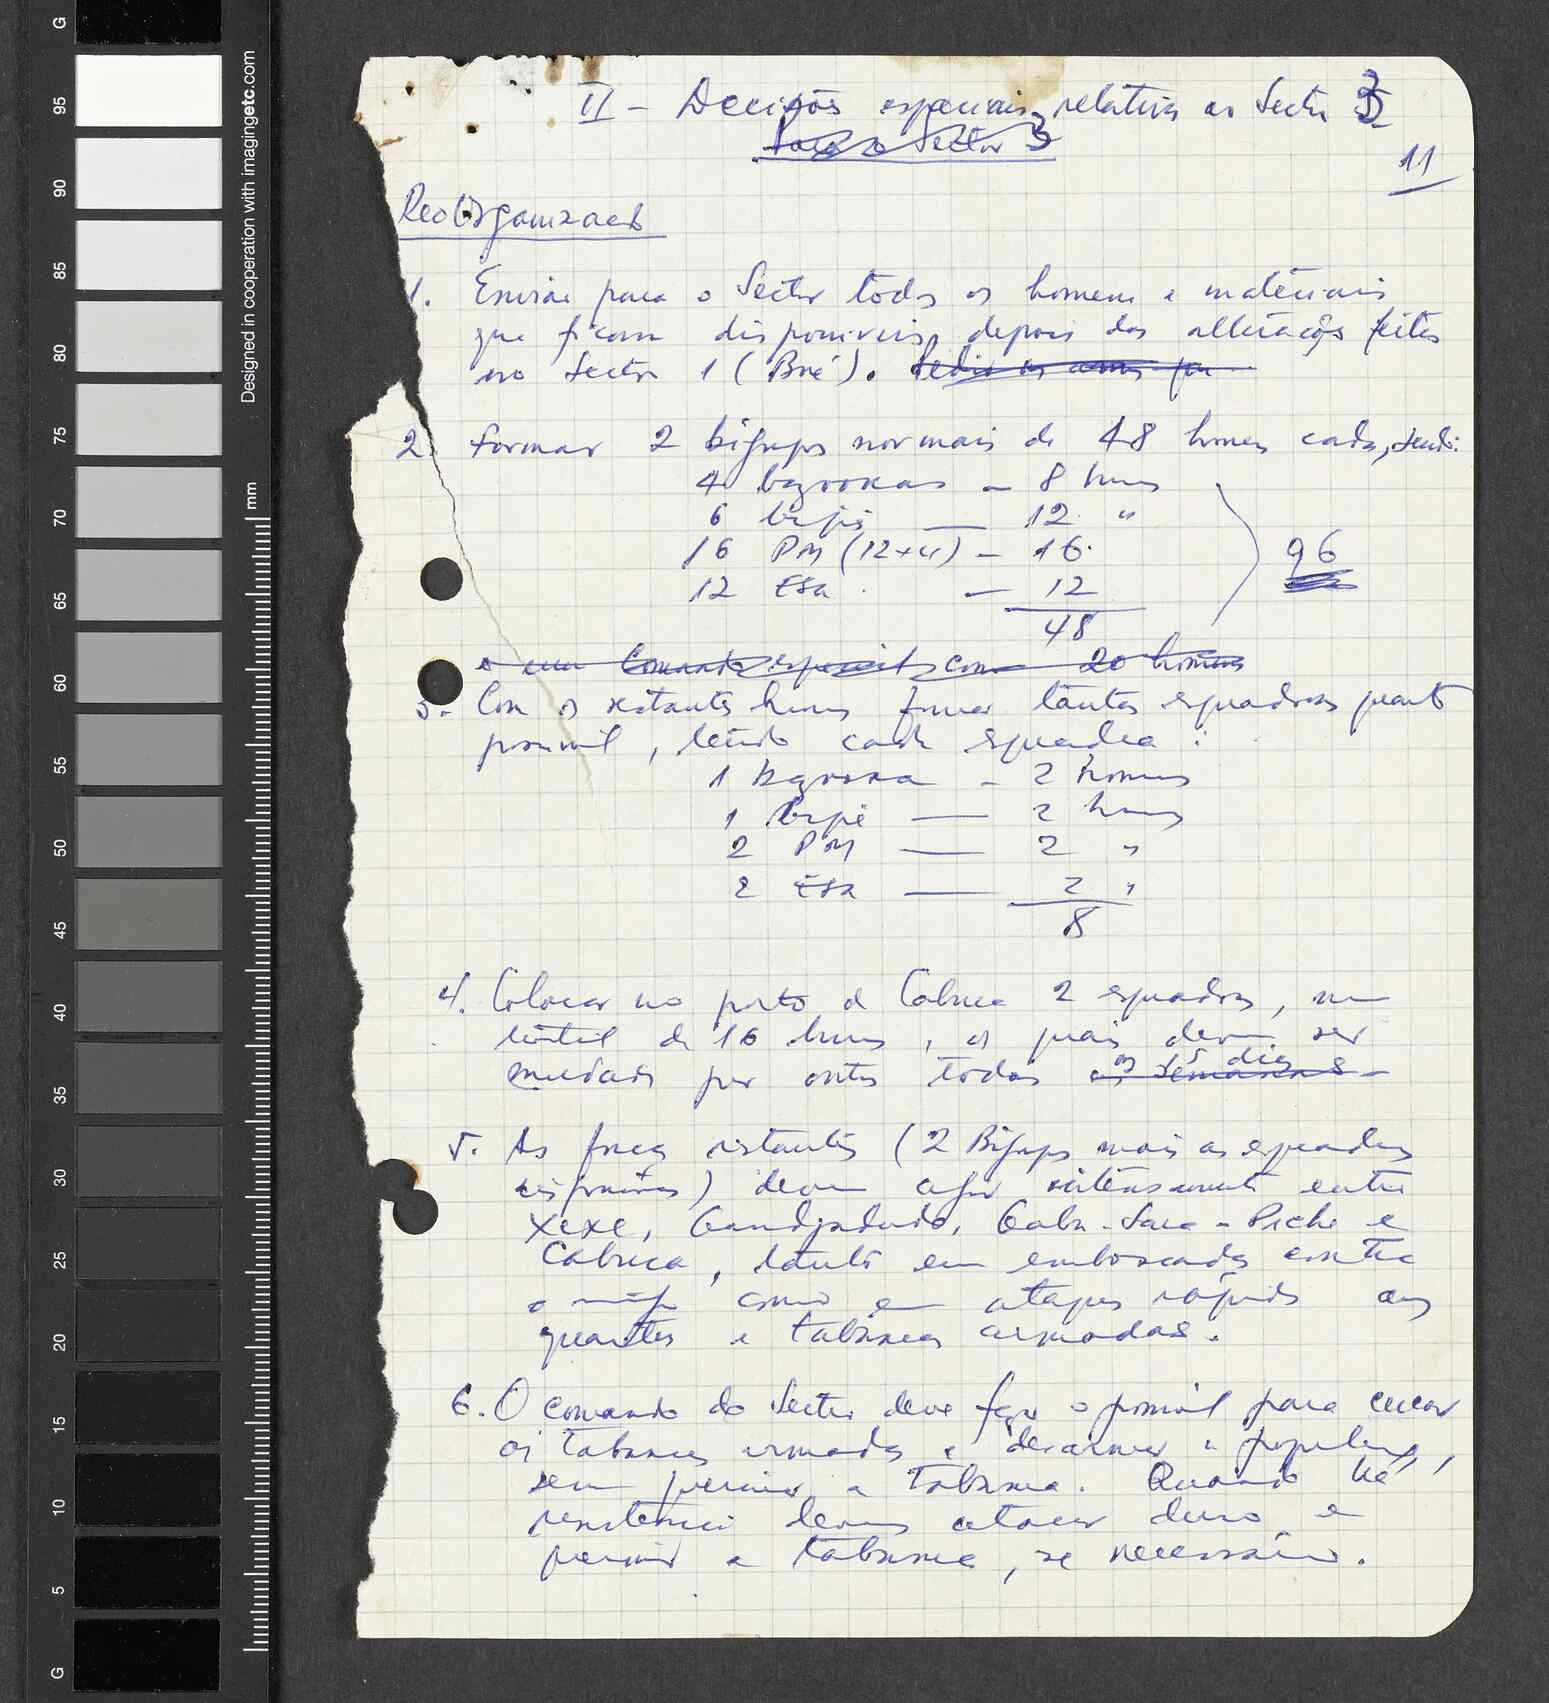 II - Decisões especiais, relativas ao Sector 3
para o Sector 3
11
Reorganização
1. Enviar para o Sector todos os homens e materiais
que ficam disponíveis, depois das alterações feitas
no Sector 1 (Boé). Pedir as armas que
2. Formar 2 bigrupos normais de 48 homens cada, sendo:
4 bazookas - 8 homens
6 lrfés — 12 "
16 PM (12+4) - 16
12 ESA - 12
48
96
e um Comando especial com 20 homens
3. Com os restantes homens formar tantas esquadras quanto
possível, tendo cada esquadra:
1 bazooka - 2 homens
1 lrfé — 2 homens
2 PM — 2 "
2 ESA — 2 "
8
4. Colocar no porto de Cabuca 2 esquadras, num
total de 16 homens, os quais devem ser
mudados por outros todos os 15 dias
as semanas
5. As forças restantes (2 Bigrupos mais as esquadras
disponíveis) devem agir intensamente entre
Xexe, Candjadude, Gabu-Sara-Piche e
Cabuca, tanto em emboscadas contra
o inimigo como em ataques rápidos aos
quartéis e tabancas armadas.
6. O comando do Sector deve fazer o possível para cercar
as tabancas armadas e desarmar a população,
sem queimar a tabanca. Quando há
resistência devem atacar duro e
queimar a tabanca, se necessário.
G
95
90
85
80
75
70
65
60
55
50
45
40
35
30
25
20
15
10
5
G
Designed in cooperation with imagingetc.com
mm